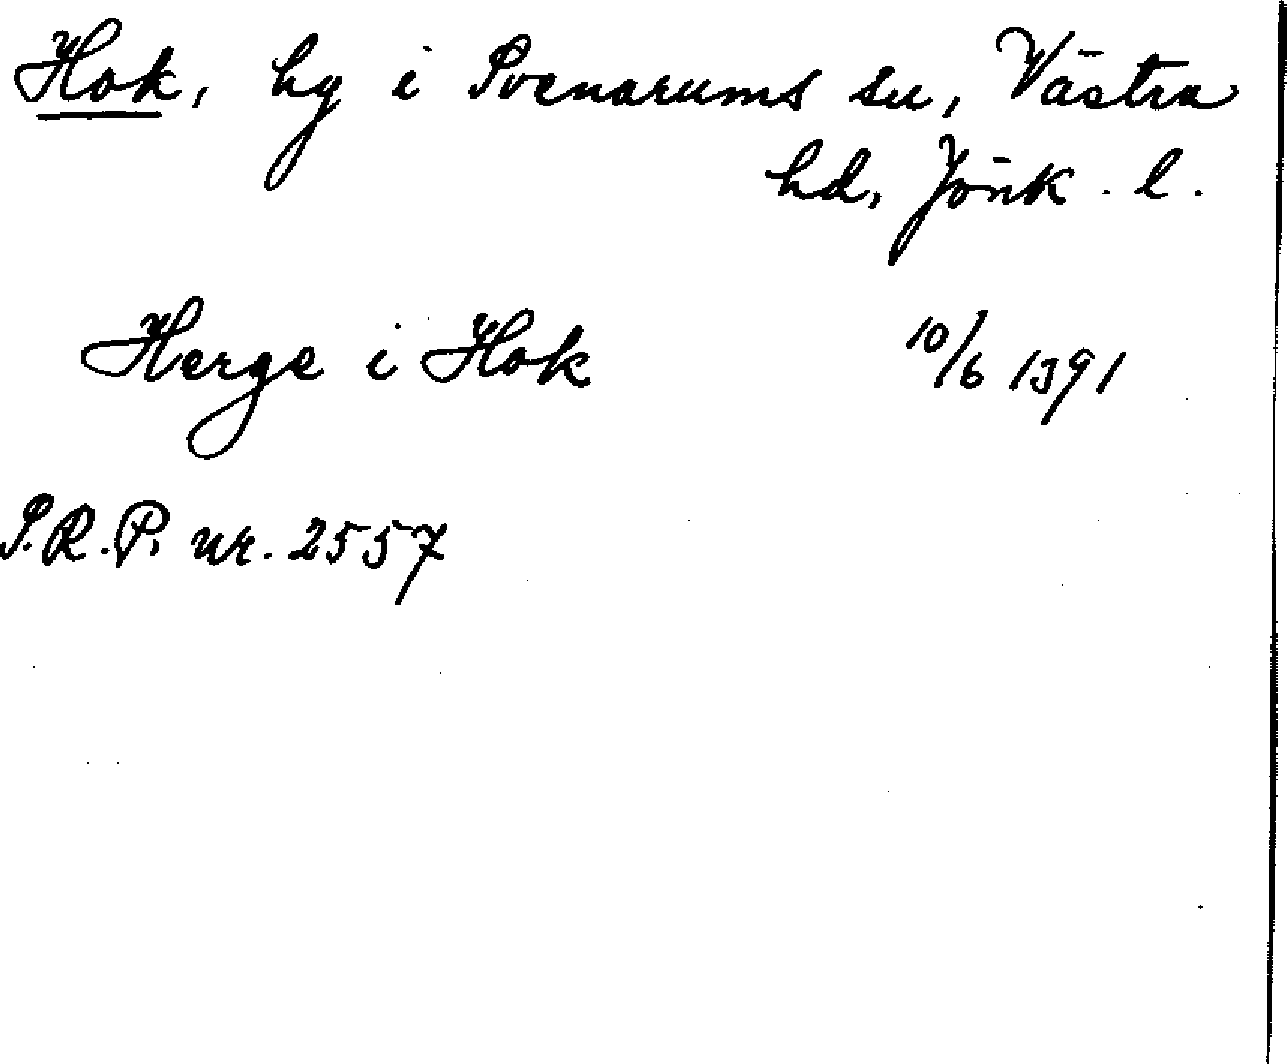 Hok, hg i Svenarums sn, Västra
hd, Jönk. l.
Herge i Hok 10/6 1391
S.R.P. nr. 2557